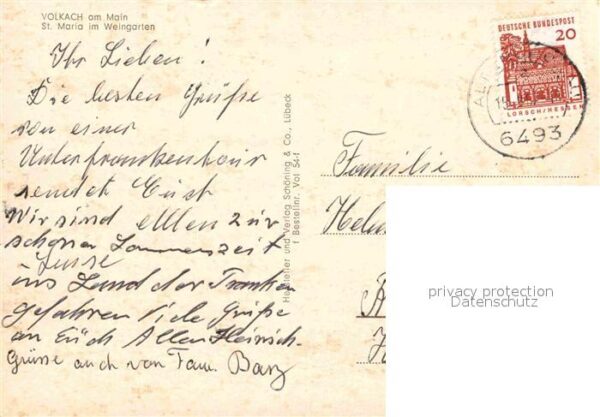 VOLKACH am Main
St. Maria im Weingarten
Ihr Lieben!
Die besten Grüße
von einer
Unterfrankentour
sendet Euch
Wir sind
zur
schönen Sommerszeit
ins Land der Franken
gefahren Viele Grüße
an Euch Allen Heinrich
Grüsse auch von Fam. Barz
Hersteller und Verlag Schöning & Co., Lübeck
Bestellnr. Vol 54-f
DEUTSCHE BUNDESPOST
20
LORSCH/HESSEN
6493
Familie
privacy protection
Datenschutz